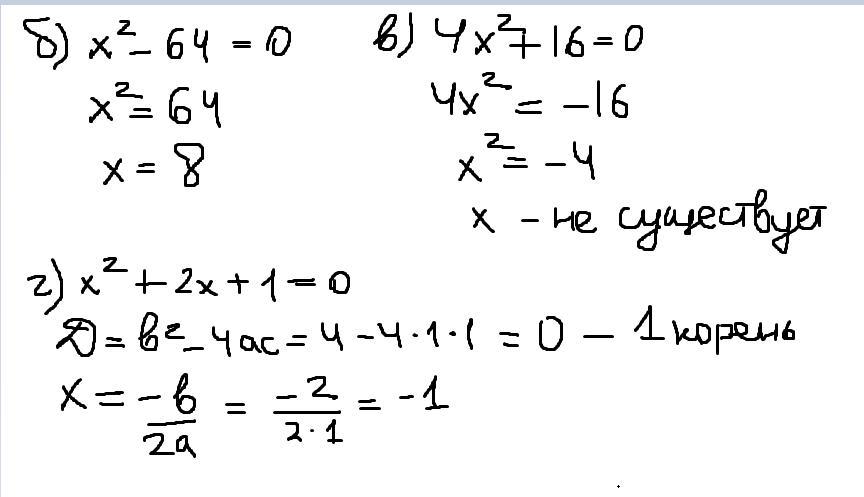 б) x² - 64 = 0
x² = 64
x = 8
в) 4x² + 16 = 0
4x² = -16
x² = -4
x - не существует
г) x² + 2x + 1 = 0
D = b² - 4ac = 4 - 4·1·1 = 0 - 1 корень
x = -b/2a = -2/2·1 = -1